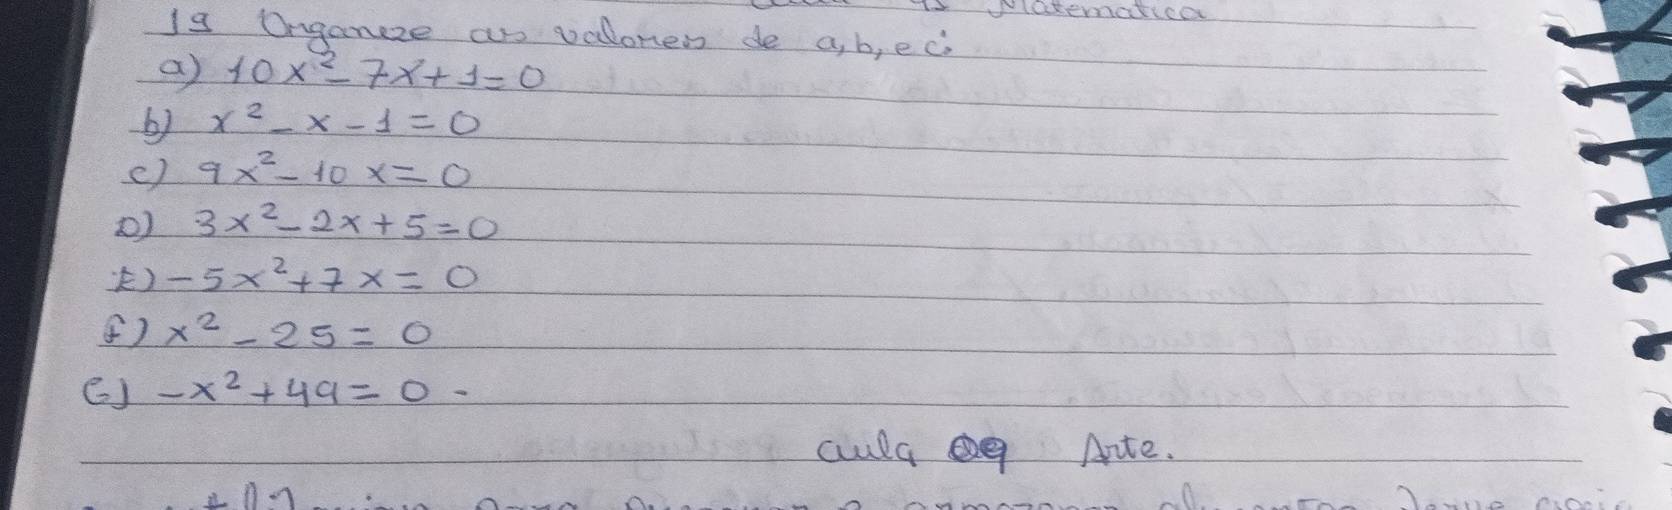 Matematica
1ª Organize as valores de a, b, e c:
a) 10x² - 7x + 1 = 0
b) x² - x - 1 = 0
c) 9x² - 10x = 0
D) 3x² - 2x + 5 = 0
E) -5x² + 7x = 0
f) x² - 25 = 0
G) -x² + 49 = 0 -
aula Arte.